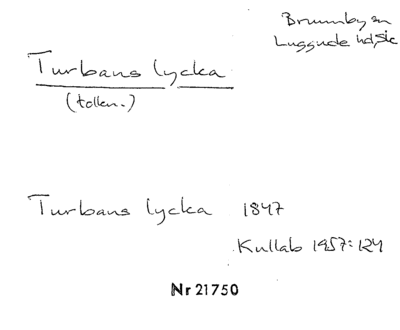 Brunnby sn
Luggude hd, Sk
Turbans lycka
(tolkn.)
Turbans lycka 1847
Kullab 1957:124
Nr 21750